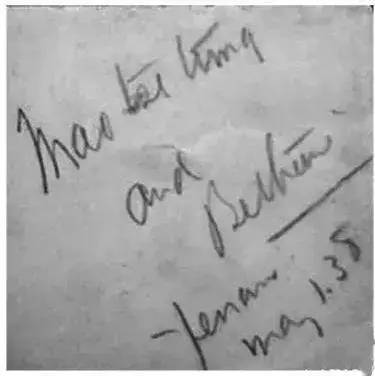 Mao tse tung
and
Bethune
- Yenan.
may 1.38